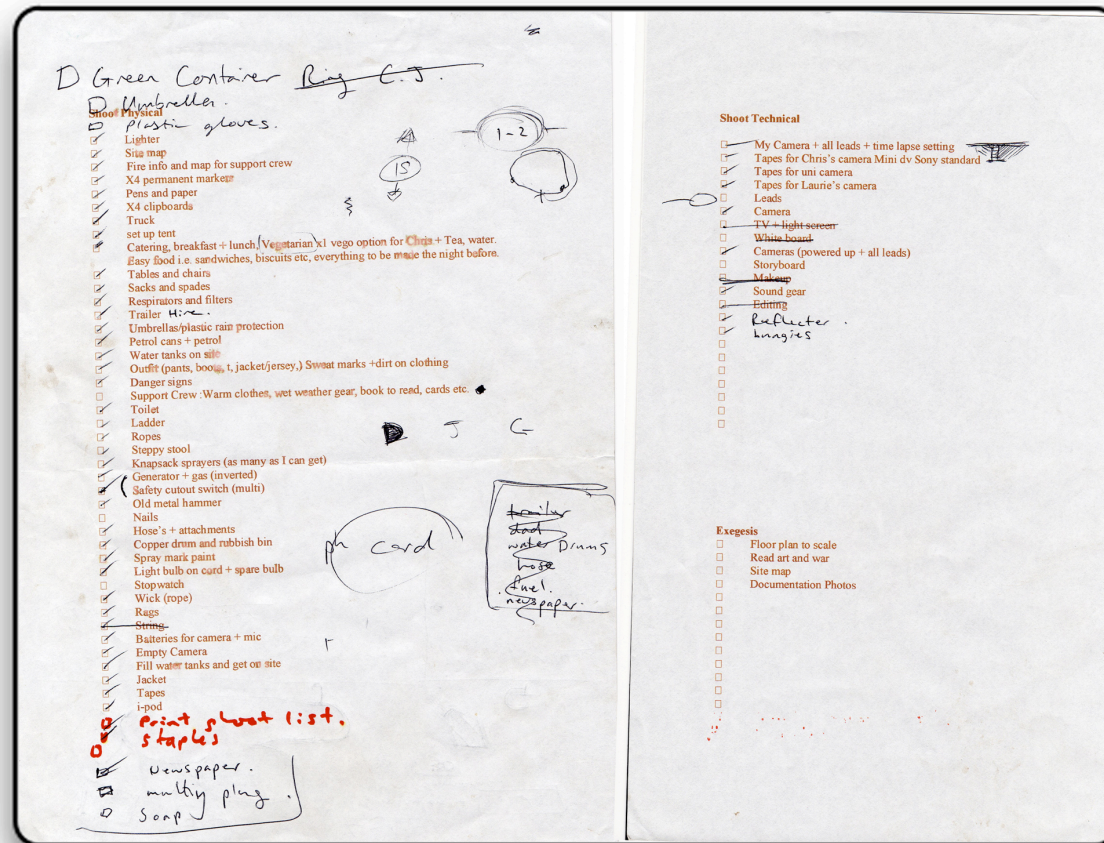 Green Container Ring C.J.
Umbrella.
Shoot Physical
Plastic gloves.
Lighter
Site map
Fire info and map for support crew
X4 permanent markers
Pens and paper
X4 clipboards
Truck
set up tent
Catering, breakfast + lunch, (Vegetarian x1 vego option for Chris + Tea, water.
Easy food i.e. sandwiches, biscuits etc, everything to be made the night before.
Tables and chairs
Sacks and spades
Respirators and filters
Trailer Hire.
Umbrellas/plastic rain protection
Petrol cans + petrol
Water tanks on site
Outfit (pants, boots, t, jacket/jersey,) Sweat marks +dirt on clothing
Danger signs
Support Crew :Warm clothes, wet weather gear, book to read, cards etc.
Toilet
Ladder
Ropes
Steppy stool
Knapsack sprayers (as many as I can get)
Generator + gas (inverted)
Safety cutout switch (multi)
Old metal hammer
Nails
Hose's + attachments
Copper drum and rubbish bin
Spray mark paint
Light bulb on cord + spare bulb
Stopwatch
Wick (rope)
Rags
String
Batteries for camera + mic
Empty Camera
Fill water tanks and get on site
Jacket
Tapes
i-pod
Print shoot list.
staples
Newspaper.
multiy plug.
Soap
1-2
15
D J G
ph card
trailer
dad
water Drums
hose
fuel.
newspaper.
Shoot Technical
My Camera + all leads + time lapse setting
Tapes for Chris's camera Mini dv Sony standard
Tapes for uni camera
Tapes for Laurie's camera
Leads
Camera
TV + light screen
White board
Cameras (powered up + all leads)
Storyboard
Makeup
Sound gear
Editing
Reflecter.
bungies
Exegesis
Floor plan to scale
Read art and war
Site map
Documentation Photos